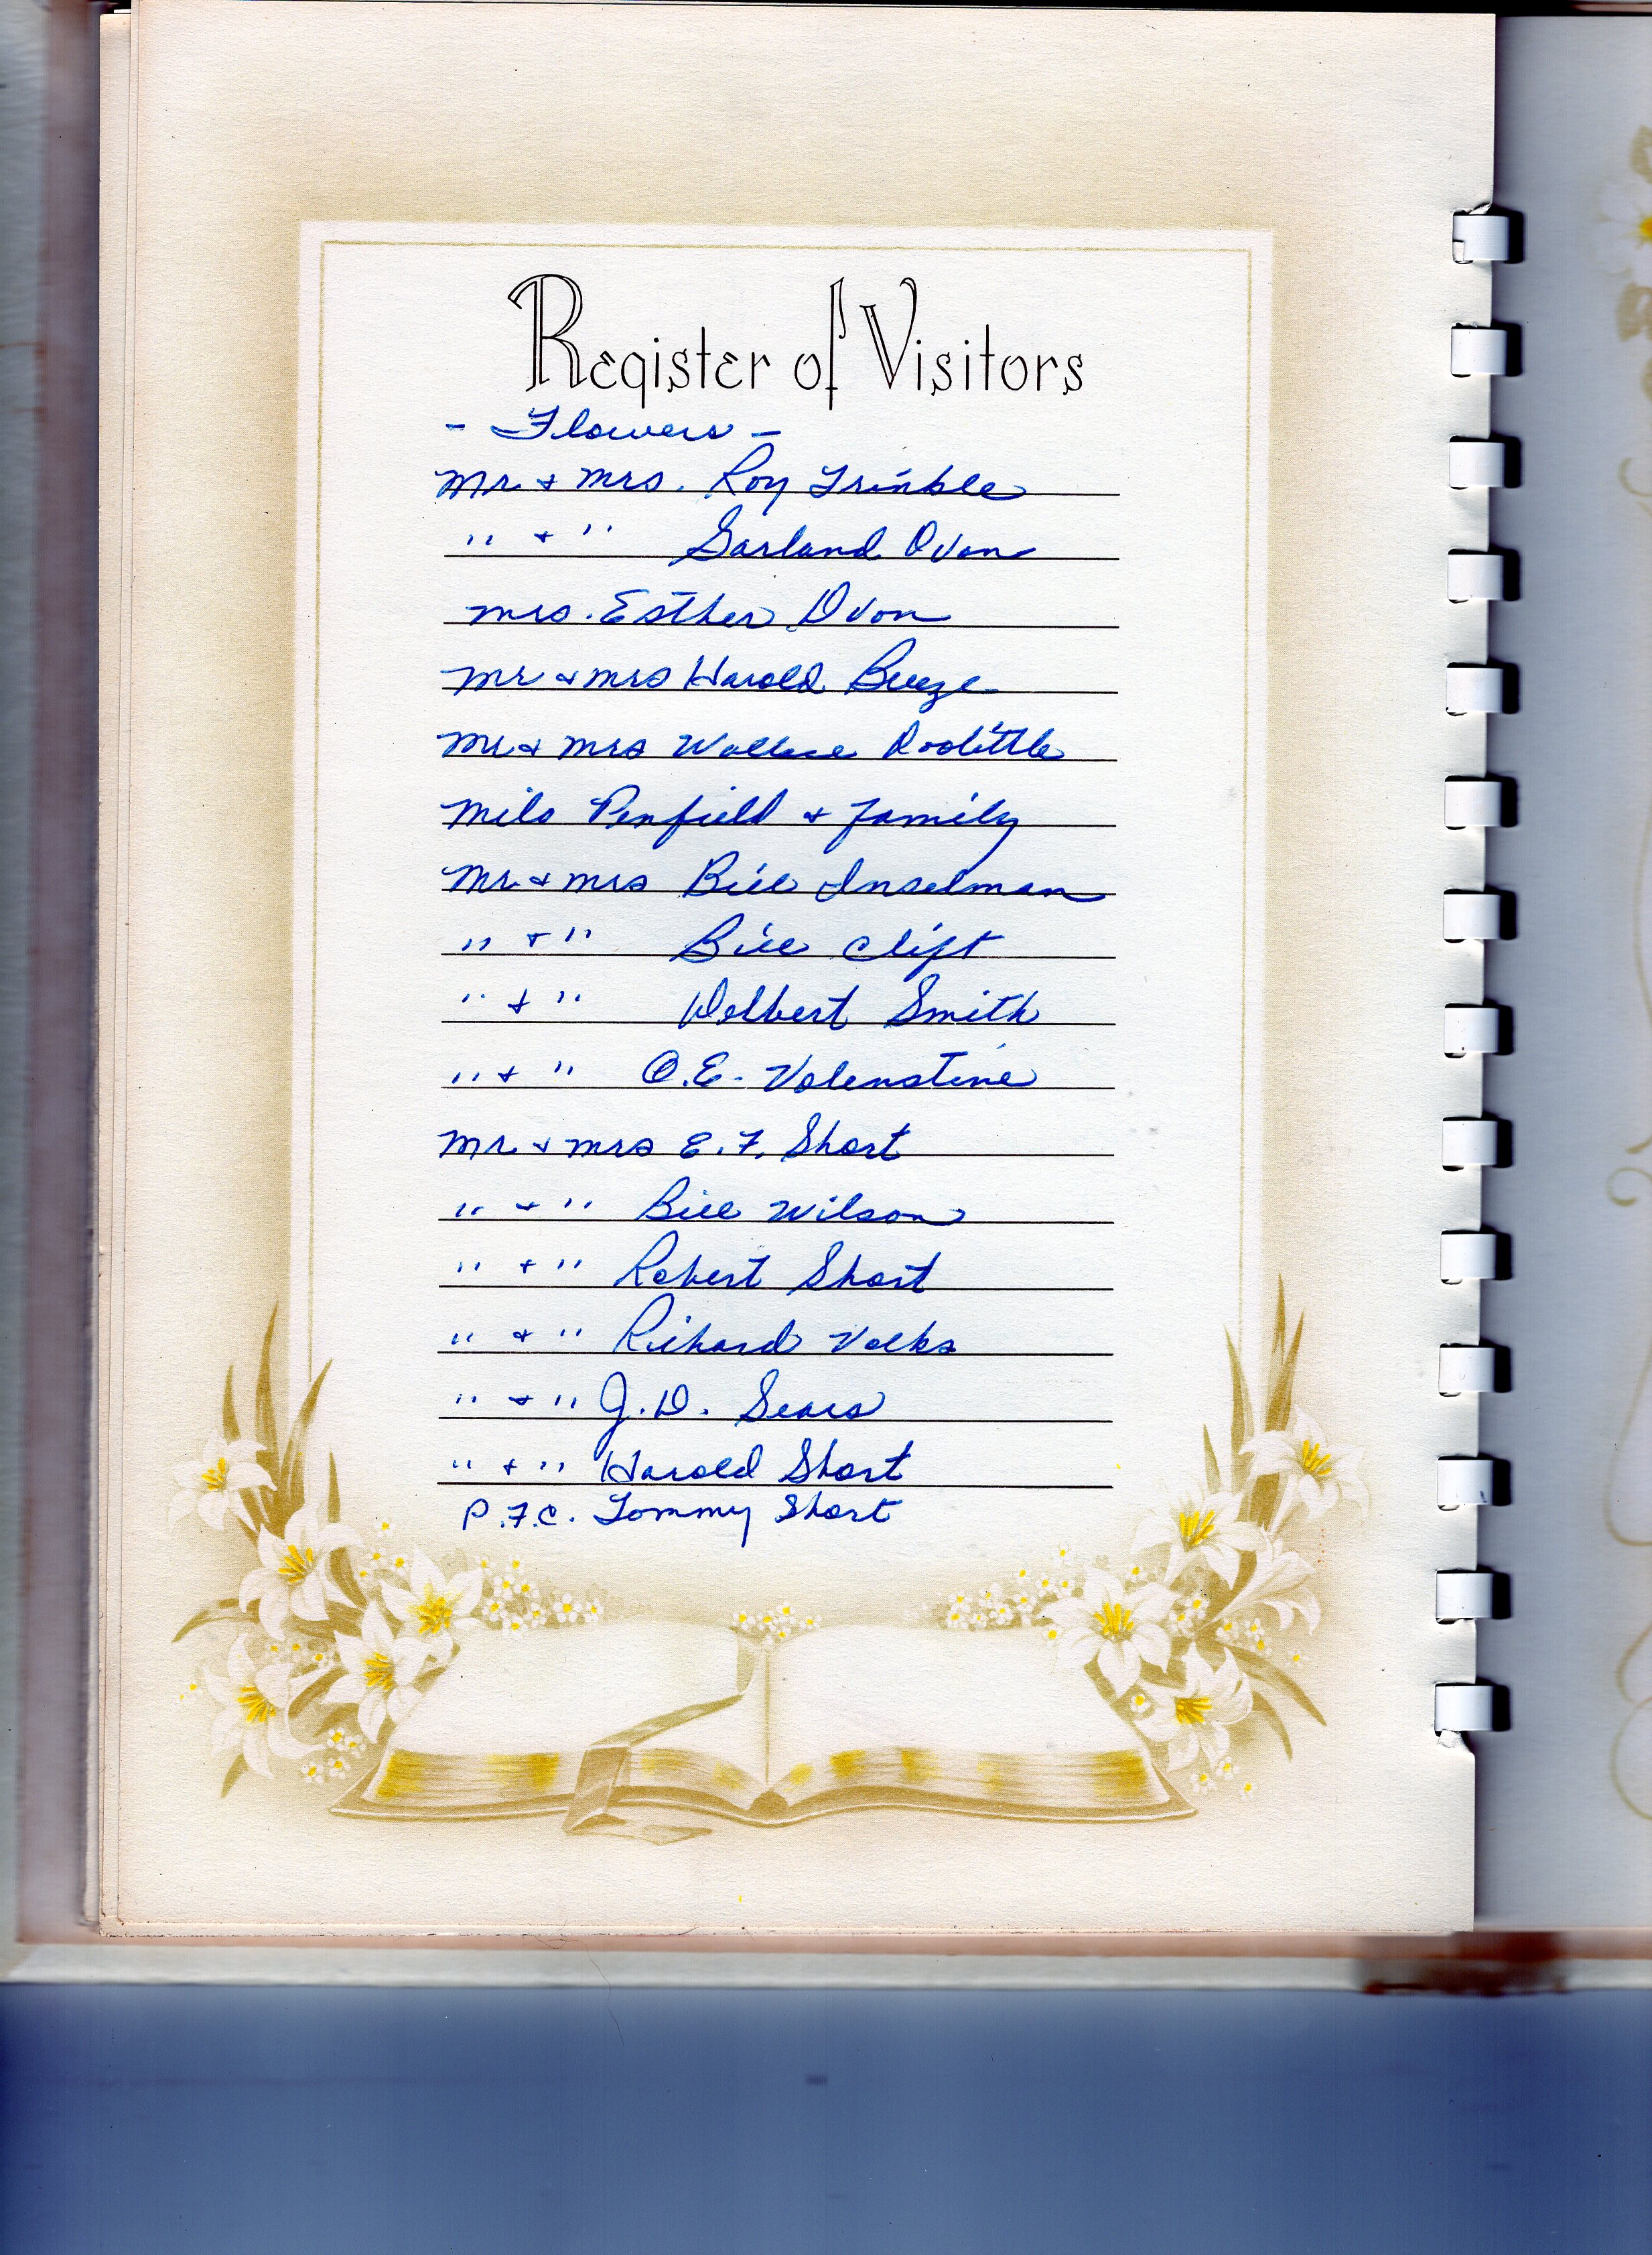 Register of Visitors
- Flowers -
Mr. & Mrs. Roy Trimble
" & " Garland Ovon
Mrs. Esther Ovon
Mr & Mrs Harold
Mr & Mrs Wallace Doolittle
Milo Penfield & Family
Mr. & Mrs Bill Inselman
" & " Bill Clift
" & " Delbert Smith
" & " O.E. Valenstine
Mr. & Mrs E.F. Short
" & " Bill Wilson
" & " Robert Short
" & " Richard Volks
" & " J.D. Sears
" & " Harold Short
P.F.C. Tommy Short